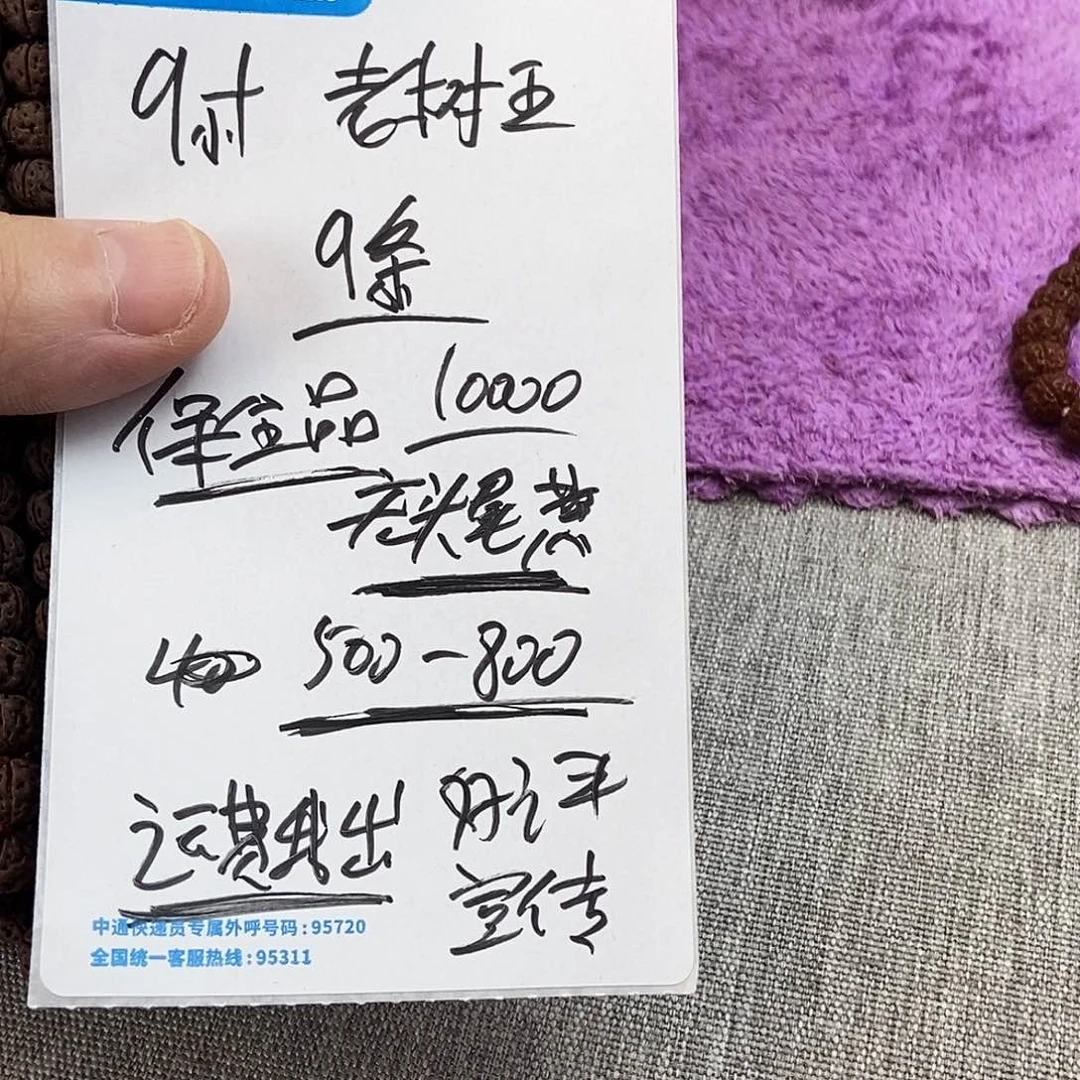 9对 老树王
9条
保全品 10000
无头尾惹
500-800
运费我出 好评
宣传
中通快递员专属外呼号码:95720
全国统一客服热线:95311